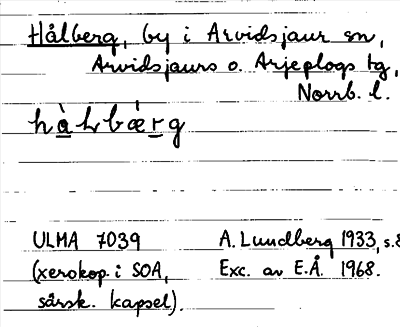 Hålberg, by i Arvidsjaur sn,
Arvidsjaurs o. Arjeplogs tg,
Norrb. l.
hàLbǽrg
ULMA 7039 A. Lundberg 1933, s.8
(xerokop. i SOA, Exc. av E.Å. 1968.
särsk. kapsel).